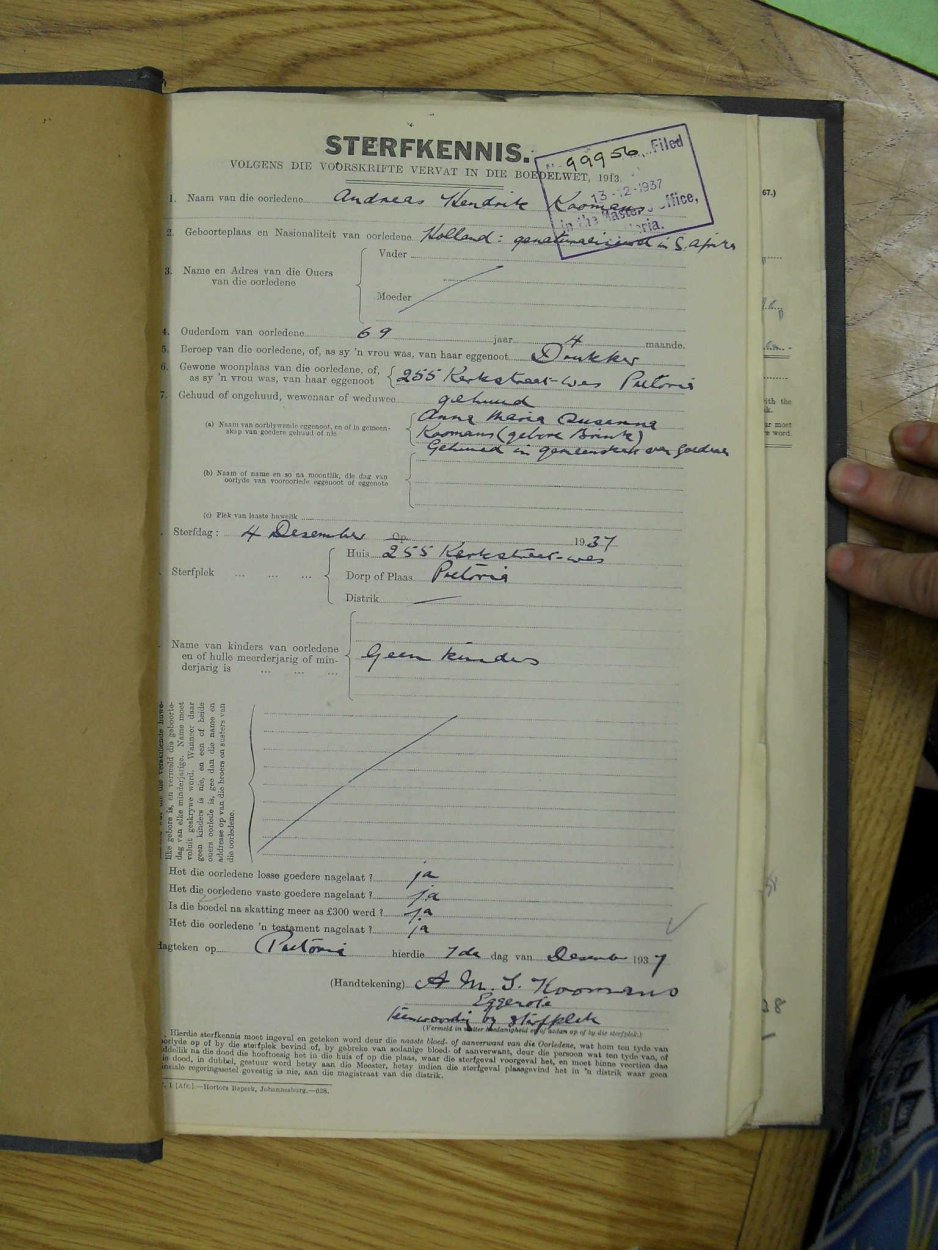 STERFKENNIS.
VOLGENS DIE VOORSKRIFTE VERVAT IN DIE BOEDELWET, 1913.
99956 Filed
13-12-1937
in the Master's Office,
1. Naam van die oorledene Andreas Hendrik Koomans
2. Geboorteplaas en Nasionaliteit van oorledene Holland: genaturaliseerd in S. Afrika
67.)
Vader
3. Name en Adres van die Ouers
van die oorledene
Moeder
4. Ouderdom van oorledene 69 jaar 4 maande.
5. Beroep van die oorledene, of, as sy 'n vrou was, van haar eggenoot Drukker
6. Gewone woonplaas van die oorledene, of,
as sy 'n vrou was, van haar eggenoot 255 Kerkstraat-wes Pretoria
7. Gehuud of ongehuud, wewenaar of weduwee gehuud
(a) Naam van oorblywende eggenoot, en of in gemeen-
skap van goedere gehuud of nie
Anna Maria Susanna
Koomans (gebore Brink)
Gehuud in gemeenskap van goedere
(b) Naam of name en so na moontlik, die dag van
oorlyde van vooroorlede eggenoot of eggenote
(c) Plek van laaste huwelik
Sterfdag: 4 Desember Op 1937
Huis 255 Kerkstraat-wes
Sterfplek ... ... ... Dorp of Plaas Pretoria
Distrik
Name van kinders van oorledene
en of hulle meerderjarig of min-
derjarig is ... ... ...
Geen kinders
like gebore is, en vermeld die geboorte-
dag van elke minderjarige. Name moet
voluit geskrywe word. Wanneer daar
geen kinders is nie, en een of beide
ouers oorlede is, gee dan die name en
addresse op van die broers en susters van
die oorledene.
Het die oorledene losse goedere nagelaat? ja
Het die oorledene vaste goedere nagelaat? ja
Is die boedel na skatting meer as £300 werd? ja
Het die oorledene 'n testament nagelaat? ja
Dagteken op Pretoria hierdie 7de dag van Desember 1937
(Handtekening) A. M. S. Koomans
Eggenote
teenwoordig by sterfplek
(Vermeld in watter hoedanigheid en of aldan op of by die sterfplek.)
Hierdie sterfkennis moet ingeval en geteken word deur die naaste bloed- of aanverwant van die Oorledene, wat hom ten tyde van
oorlyde op of by die sterfplek bevind of, by gebreke van sodanige bloed- of aanverwant, deur die persoon wat ten tyde van, of
middellik na die dood die hooftoesig het in die huis of op die plaas, waar die sterfgeval voorgeval het, en moet binne veertien dae
dood, in dubbel, gestuur word hetsy aan die Meester, hetsy indien die sterfgeval plaasgevind het in 'n distrik waar geen
regeringssetel gevestig is nie, aan die magistraat van die distrik.
1 [Afr.].—Hortors Beperk, Johannesburg.—628.